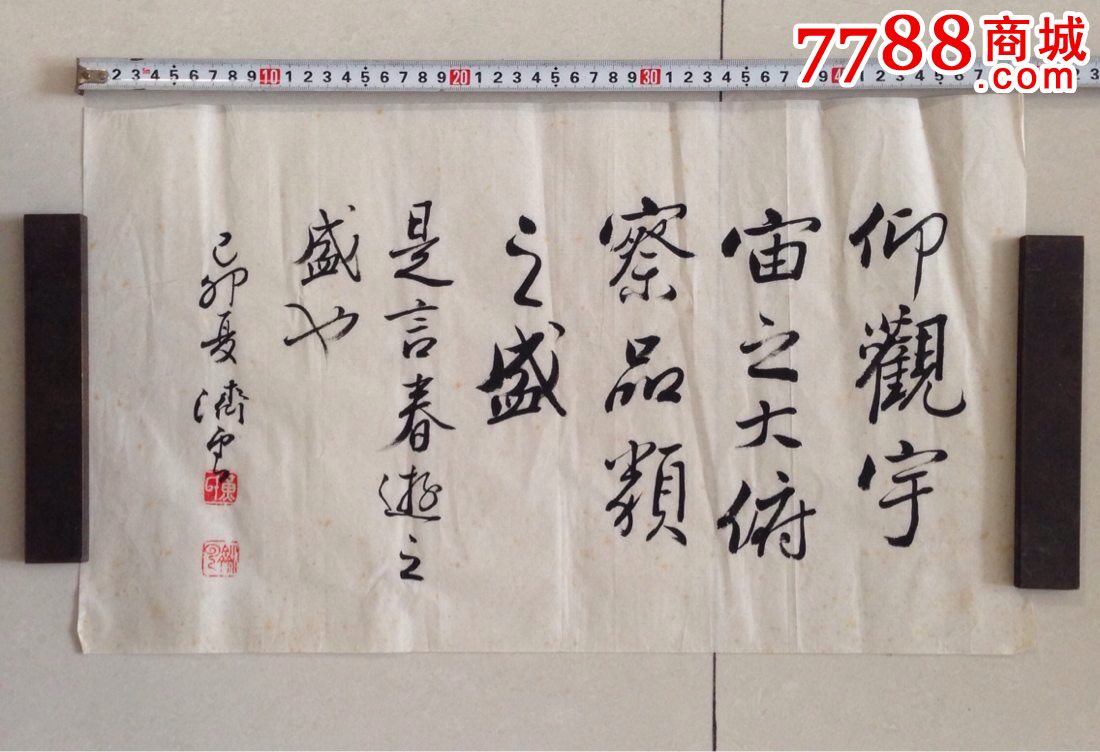 7788商城
.com
2 3 5m 4 5 6 7 8 9 10 1 2 3 4 5 6 7 8 9 20 1 2 3 4 5 6 7 8 9 30 1 2 3 4 5 6 7 8
仰觀宇
宙之大俯
察品類
之盛
是言春遊之
盛也
己卯夏濟雲